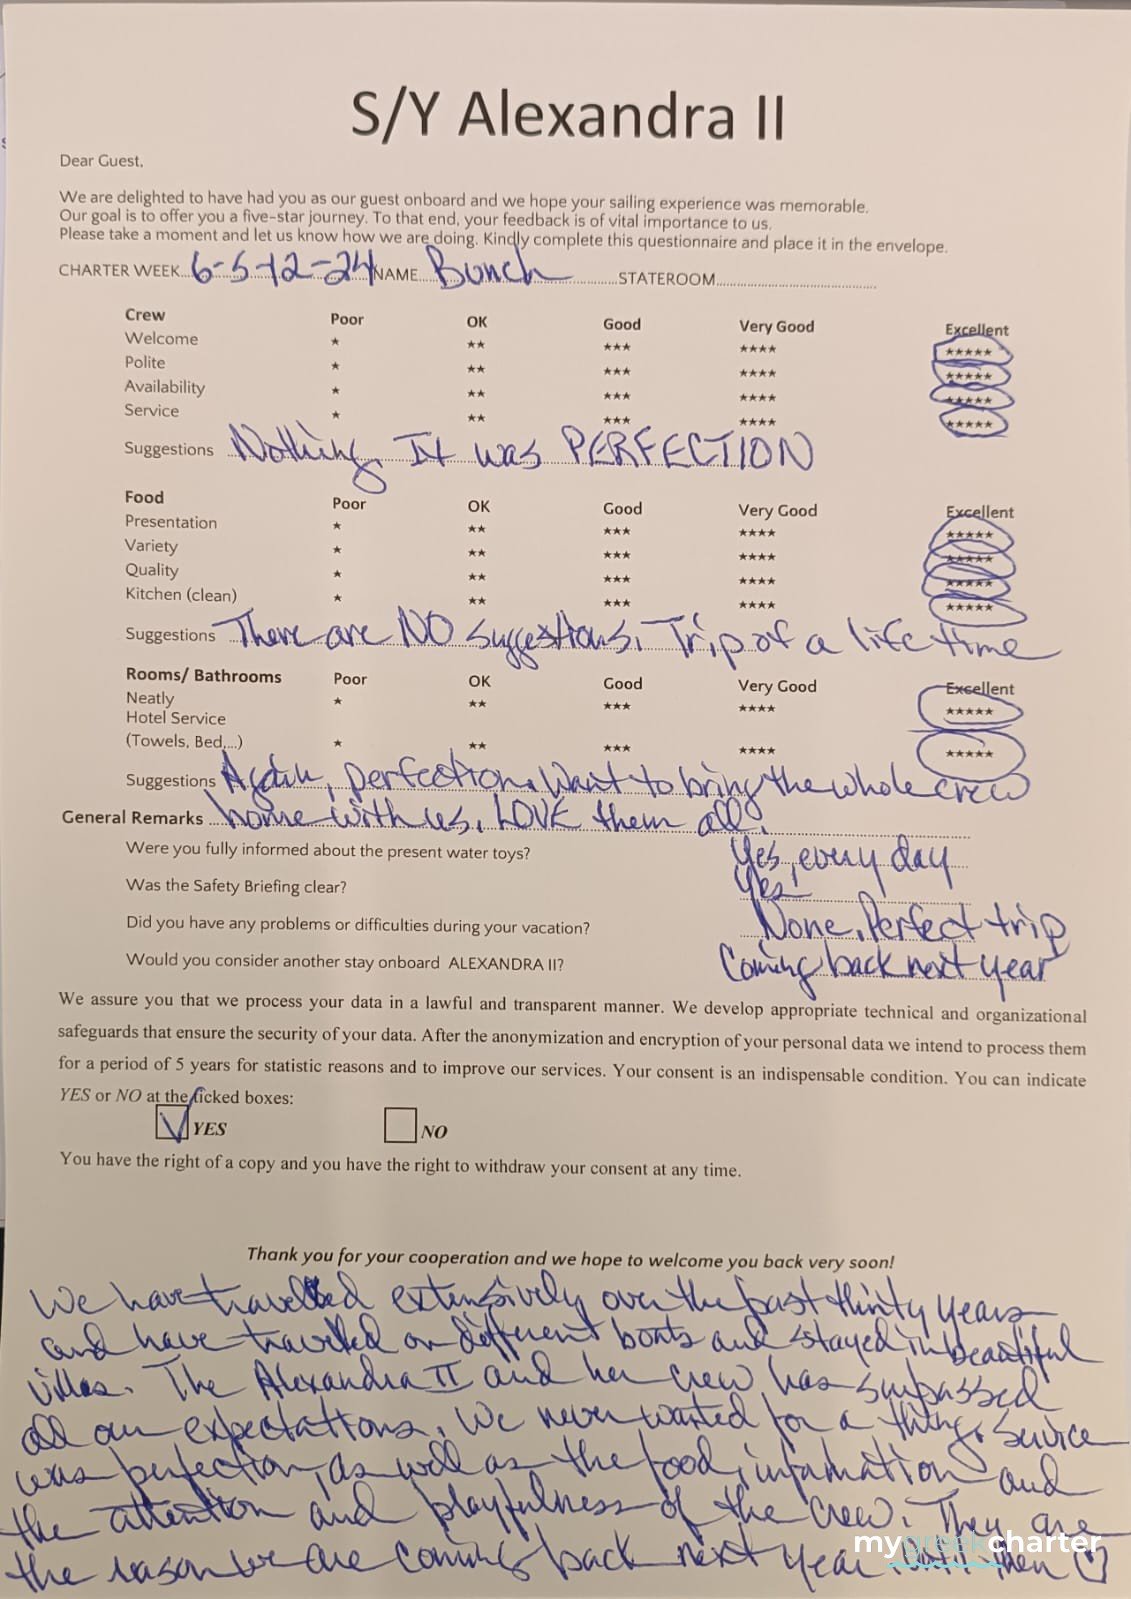 S/Y Alexandra II
Dear Guest,
We are delighted to have had you as our guest onboard and we hope your sailing experience was memorable.
Our goal is to offer you a five-star journey. To that end, your feedback is of vital importance to us.
Please take a moment and let us know how we are doing. Kindly complete this questionnaire and place it in the envelope.
CHARTER WEEK 6-5-12-24 NAME Bunch STATEROOM
Crew Poor OK Good Very Good Excellent
Welcome ★ ★★ ★★★ ★★★★ ★★★★★
Polite ★ ★★ ★★★ ★★★★ ★★★★★
Availability ★ ★★ ★★★ ★★★★ ★★★★★
Service ★ ★★ ★★★ ★★★★ ★★★★★
Suggestions Nothing, It was PERFECTION
Food Poor OK Good Very Good Excellent
Presentation ★ ★★ ★★★ ★★★★ ★★★★★
Variety ★ ★★ ★★★ ★★★★ ★★★★★
Quality ★ ★★ ★★★ ★★★★ ★★★★★
Kitchen (clean) ★ ★★ ★★★ ★★★★ ★★★★★
Suggestions There are NO suggestions. Trip of a life time
Rooms/ Bathrooms Poor OK Good Very Good Excellent
Neatly ★ ★★ ★★★ ★★★★ ★★★★★
Hotel Service
(Towels, Bed,...) ★ ★★ ★★★ ★★★★ ★★★★★
Suggestions Again, perfection. Want to bring the whole crew
General Remarks home with us. LOVE them all!
Were you fully informed about the present water toys? Yes, every day
Was the Safety Briefing clear? Yes!
Did you have any problems or difficulties during your vacation? None. Perfect trip
Would you consider another stay onboard ALEXANDRA II? Coming back next year
We assure you that we process your data in a lawful and transparent manner. We develop appropriate technical and organizational
safeguards that ensure the security of your data. After the anonymization and encryption of your personal data we intend to process them
for a period of 5 years for statistic reasons and to improve our services. Your consent is an indispensable condition. You can indicate
YES or NO at the ticked boxes:
YES NO
You have the right of a copy and you have the right to withdraw your consent at any time.
Thank you for your cooperation and we hope to welcome you back very soon!
We have travelled extensively over the past thirty years
and have travelled on different boats and stayed in beautiful
villas. The Alexandra II and her crew has surpassed
all our expectations. We never wanted for a thing. Service
was perfection, as well as the food, information and
the attention and playfulness of the crew. They are
the reason we are coming back next year then
mygreekcharter